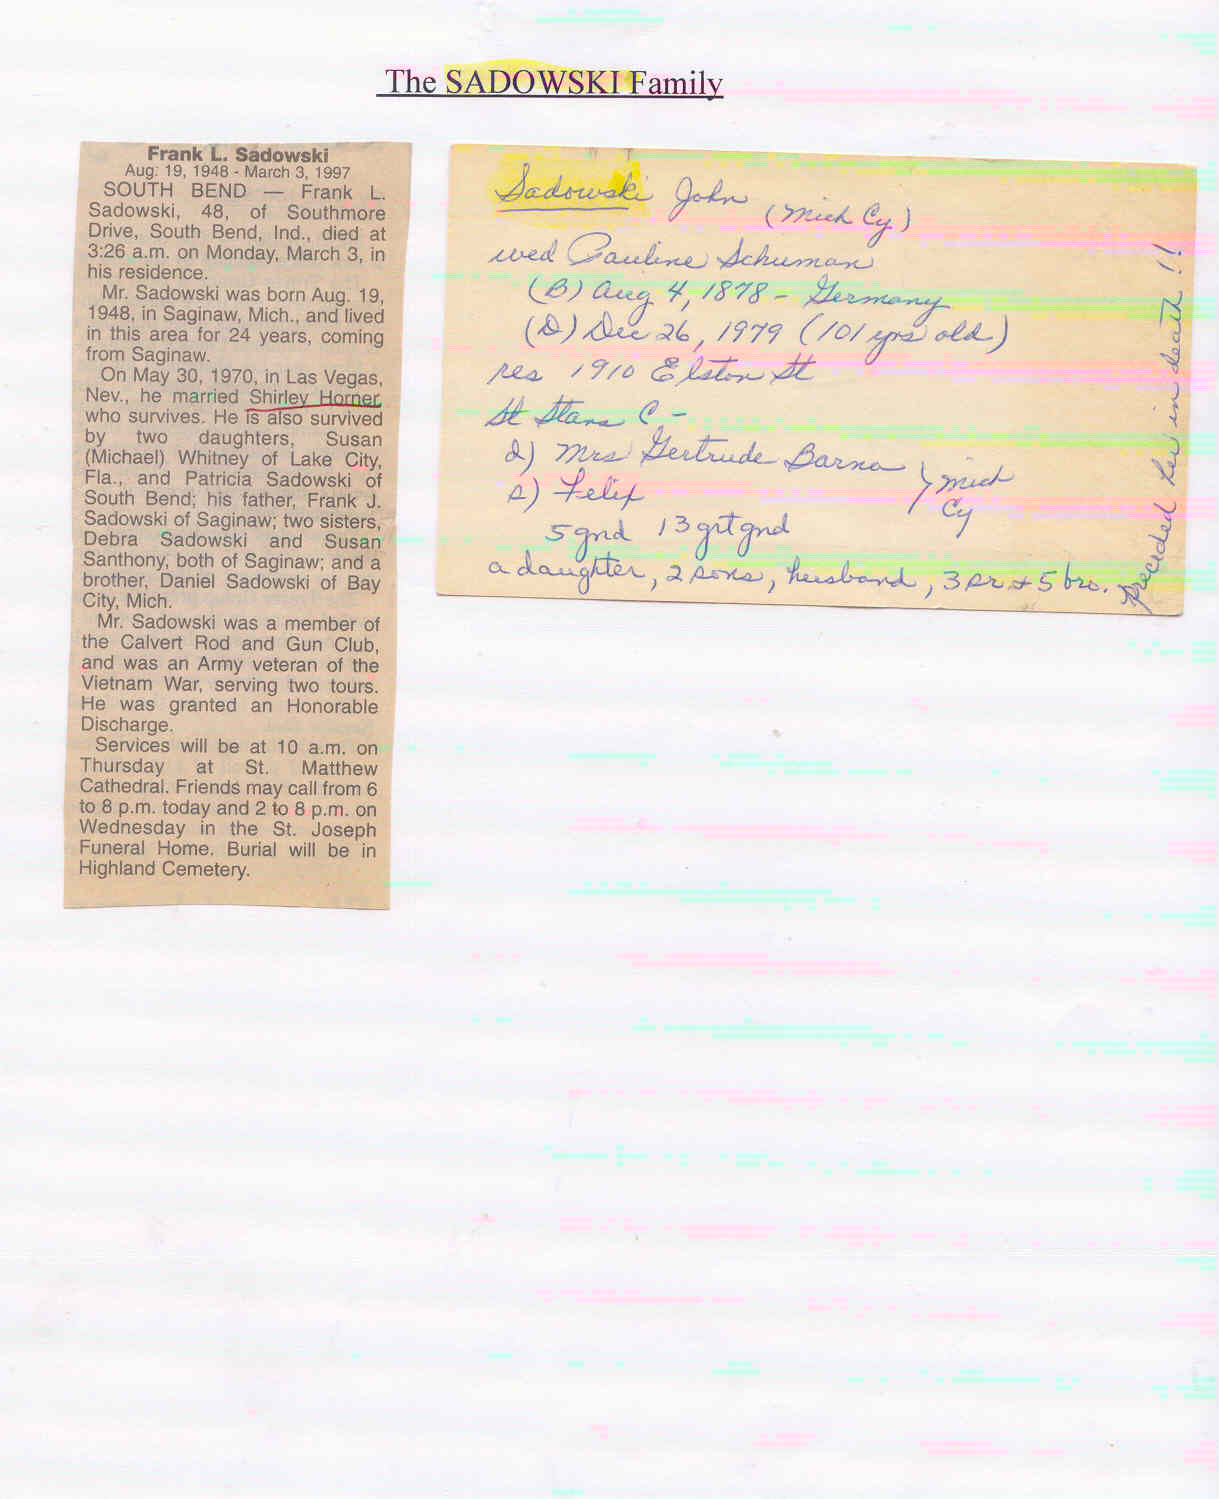 The SADOWSKI Family
Frank L. Sadowski
Aug. 19, 1948 - March 3, 1997
SOUTH BEND — Frank L.
Sadowski, 48, of Southmore
Drive, South Bend, Ind., died at
3:26 a.m. on Monday, March 3, in
his residence.
Mr. Sadowski was born Aug. 19,
1948, in Saginaw, Mich., and lived
in this area for 24 years, coming
from Saginaw.
On May 30, 1970, in Las Vegas,
Nev., he married Shirley Horner,
who survives. He is also survived
by two daughters, Susan
(Michael) Whitney of Lake City,
Fla., and Patricia Sadowski of
South Bend; his father, Frank J.
Sadowski of Saginaw; two sisters,
Debra Sadowski and Susan
Santhony, both of Saginaw; and a
brother, Daniel Sadowski of Bay
City, Mich.
Mr. Sadowski was a member of
the Calvert Rod and Gun Club,
and was an Army veteran of the
Vietnam War, serving two tours.
He was granted an Honorable
Discharge.
Services will be at 10 a.m. on
Thursday at St. Matthew
Cathedral. Friends may call from 6
to 8 p.m. today and 2 to 8 p.m. on
Wednesday in the St. Joseph
Funeral Home. Burial will be in
Highland Cemetery.
Sadowski John (Mich Cy)
wed Pauline Schuman
(B) Aug 4, 1878 - Germany
(D) Dec 26, 1979 (101 yrs old)
res 1910 Elston St
St Stans C -
d) Mrs Gertrude Barna
s) Felix
} Mich
Cy
5 gnd 13 grt gnd
a daughter, 2 sons, husband, 3 sr + 5 bro.
preceded her in death !!